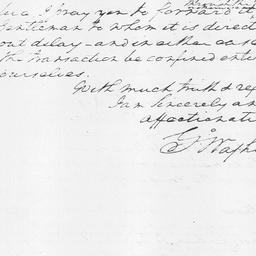 I pray you to forward it
Gentleman to whom it is direct
out delay - and in either case
the transaction be confined enti
ourselves.
With much truth & re
I am sincerely an
affectionat
G. Wash